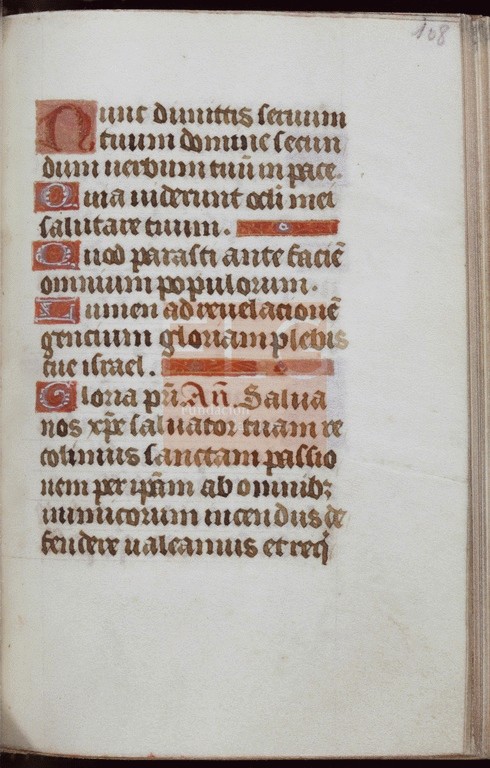 108
Nunc dimittis seruum
tuum domine secun
dum uerbum tuū in pace.
Quia uiderunt oculi mei
salutare tuum.
Quod parasti ante faciē
omnium populorum.
Lumen ad reuelacionē
gencium gloriam plebis
tue israel.
Gloria pr̄i. Añ. Salua
nos xp̄e saluator tuam re
colimus sanctam passio
nem per ip̄am ab omnibꝫ
inimicorum incendiis de
fendere ualeamus et req̄
Fundación